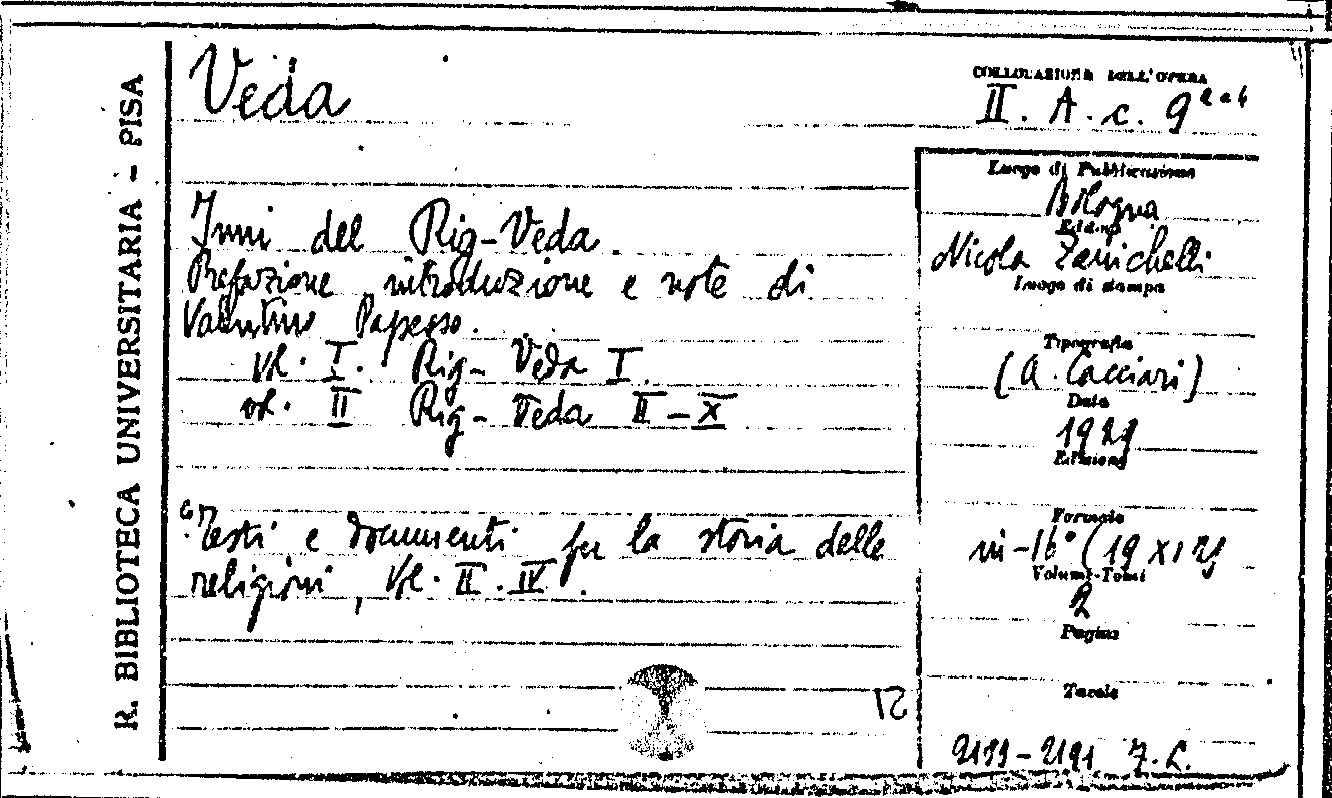 R. BIBLIOTECA UNIVERSITARIA - PISA
Veda
COLLOCAZIONE DELL'OPERA
II. A. c. 9
Inni del Rig-Veda.
Prefazione introduzione e note di
Valentino Papesso.
vol. I. Rig-Veda I.
vol. II Rig-Veda II-X
"Testi e documenti per la storia delle
religioni, vol. II. IV.
Luogo di Pubblicazione
Bologna
Editore
Nicola Zanichelli
Luogo di stampa
Tipografia
(A. Cacciari)
Data
1929
Edizione
Formato
in-16° (19 x 12)
Volumi-Tomi
2
Pagine
Tavole